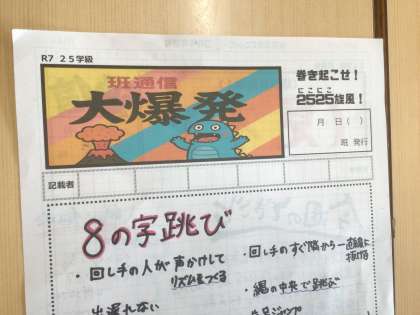 R7 25学級
班通信
大爆発
巻き起こせ!
にこにこ
2525旋風!
月 日( )
班 発行
記載者
8の字跳び
・回し手の人が声かけして
リズムをつくる
・回し手のすぐ隣から一直線に
抜ける
出遅れない
・縄の中央で跳ぶ